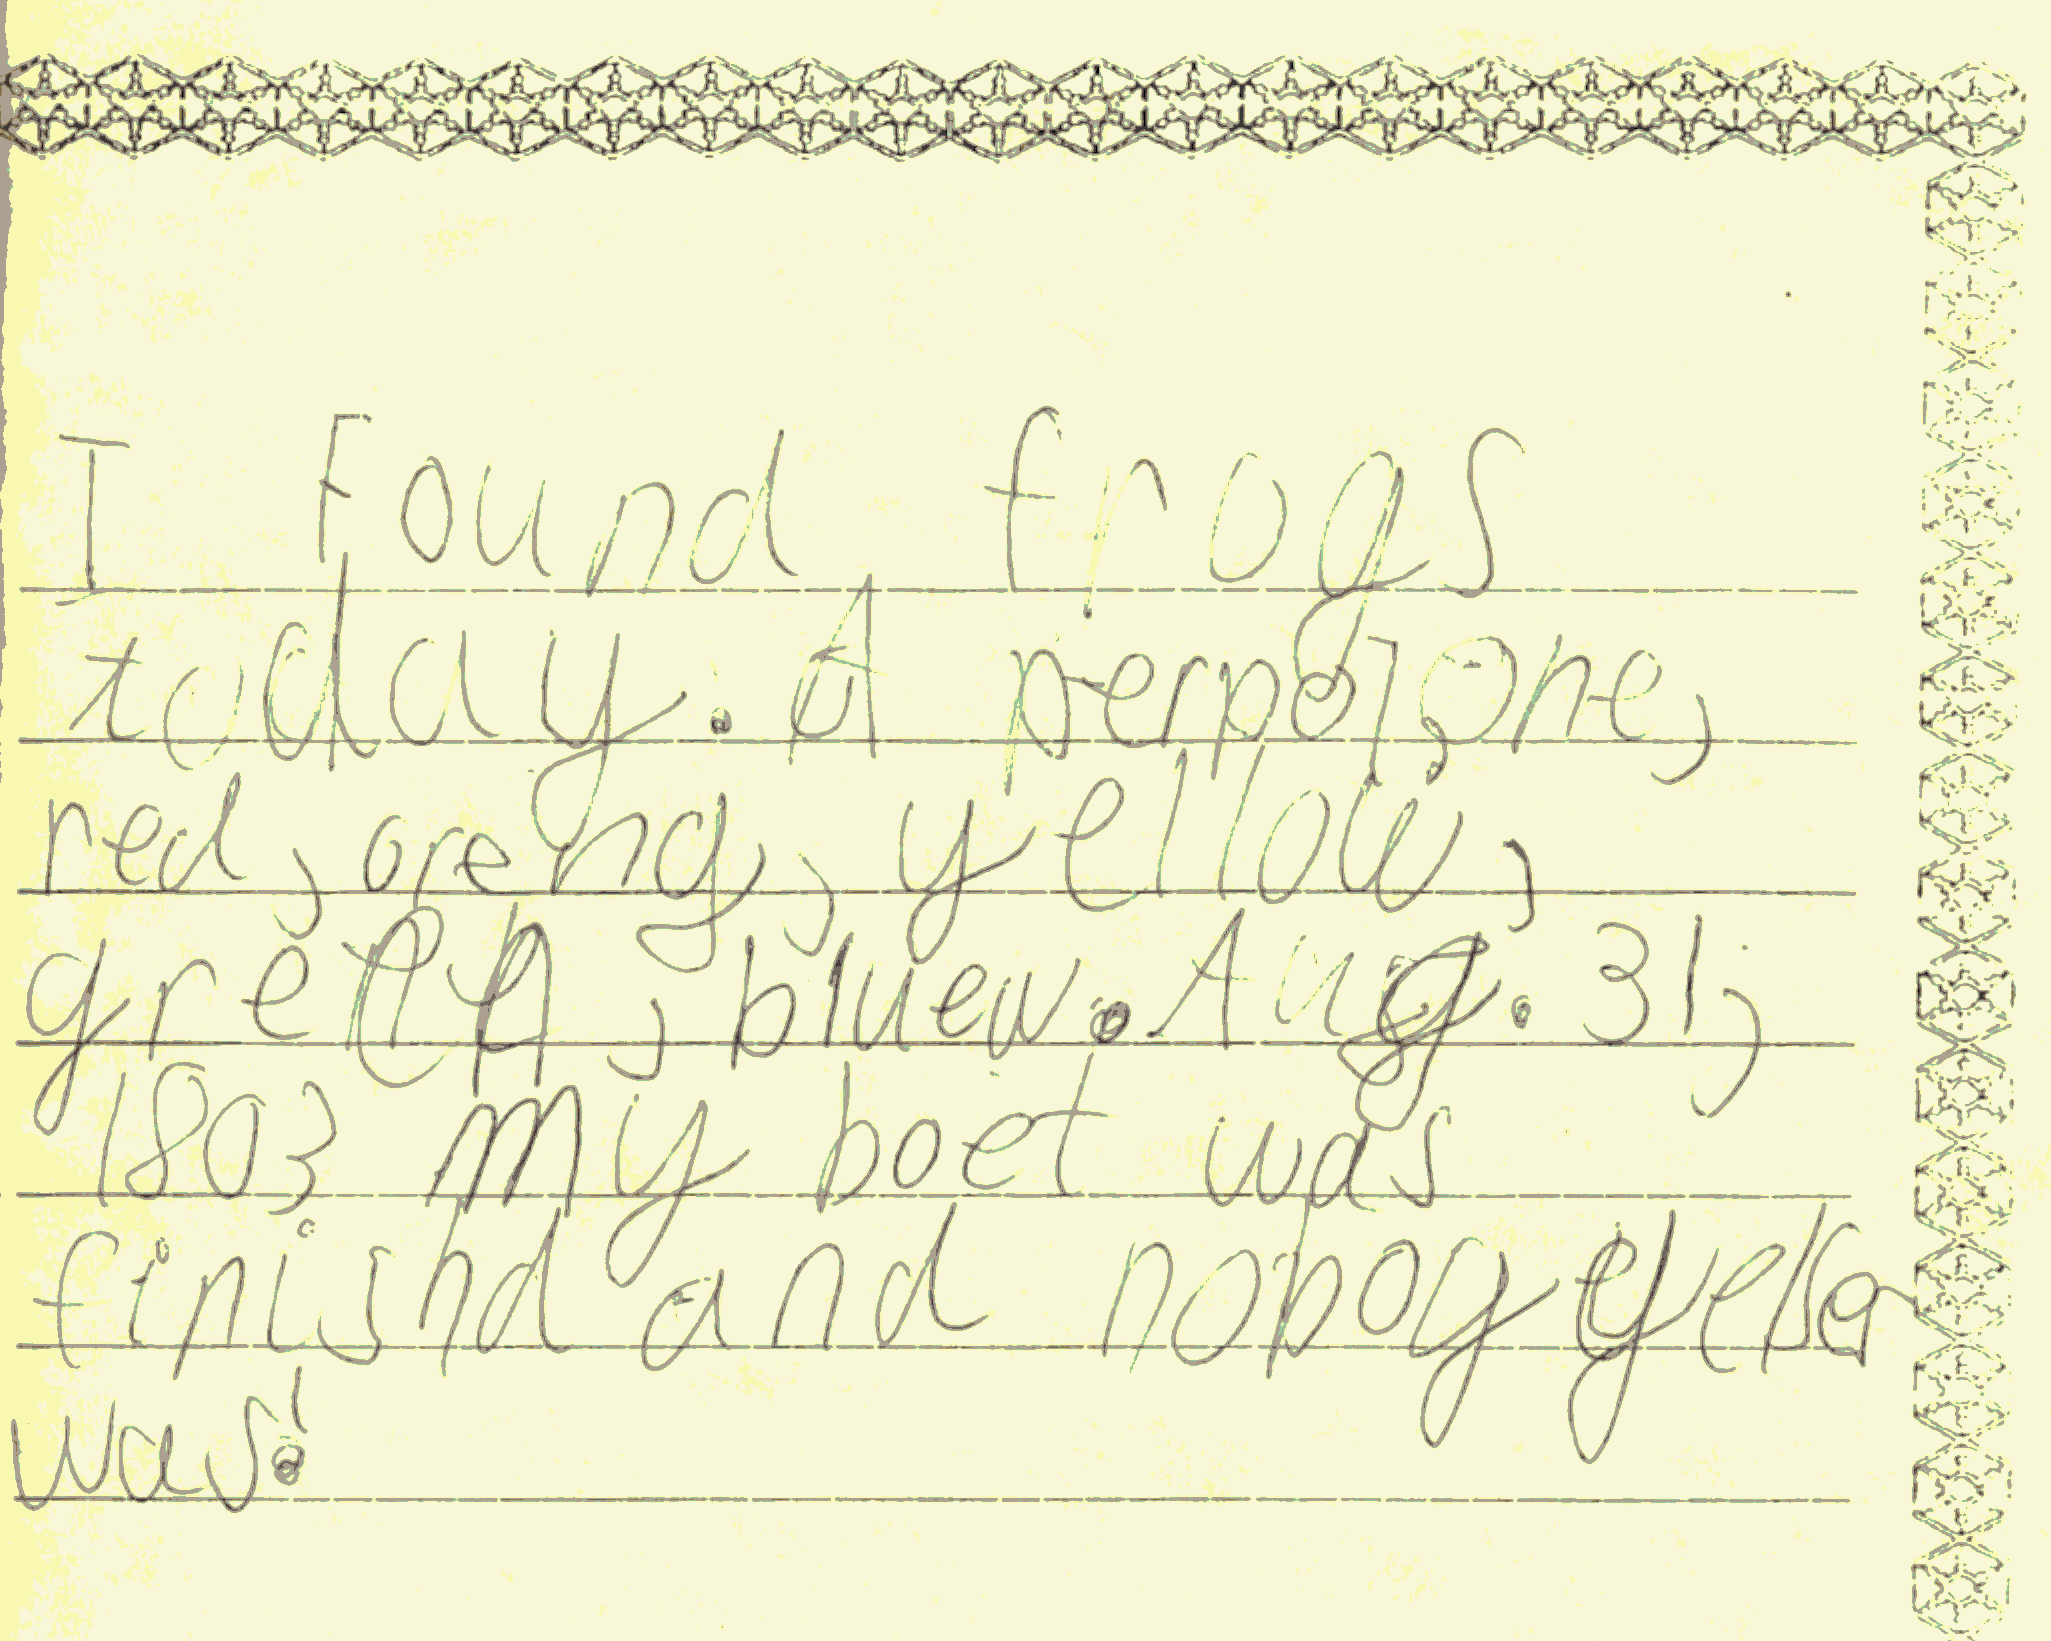 I Found frogs
today. A perpol, One,
red, oreng, yellow,
green, bluew. Aug. 31,
1803 my boet was
finishd and nobogy els
was!